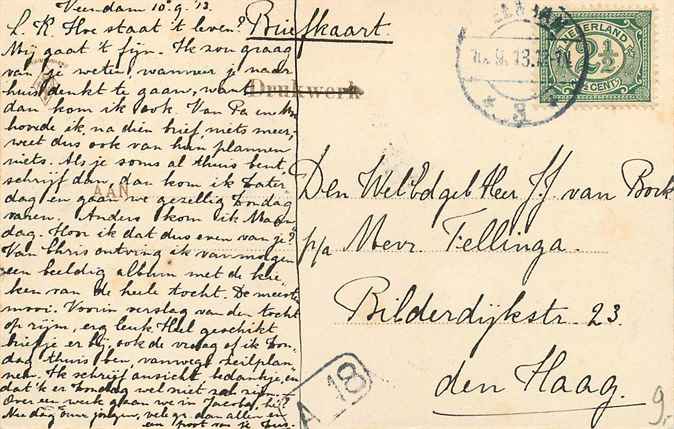 Veendam 10.9.'13.
L. K. Hoe staat 't leven?
Mij gaat 't fijn. Ik zou graag
van je weten, wanneer je naar
huis denkt te gaan, want
dan kom ik ook. Van Pa en
hoorde ik na dien brief niets meer,
weet dus ook van hun plannen
niets. Als je soms al thuis bent,
schrijf dan, dan kom ik Zater-
dag en gaan we gezellig Zondag
varen. Anders kom ik Maan-
dag. Hoor ik dat dus even van je?
Van Chris ontving ik van morgen
een beeldig album met de kie-
ken van de heele tocht. De meeste
mooi. Voorin verslag van den tocht
op rijm, erg leuk. Heel geschikt
briefje er bij, ook de vraag of ik Zon-
dag thuis ben vanwege zeilplan-
nen. Ik schrijf ansicht bedankje, en
dat 'k er Zondag wel niet zal zijn.
Over een week gaan we in
Nu dag jongen, vele gr. dan allen en
een poot van je Zus.
Briefkaart.
Drukwerk
AAN
10.9.13.
NEDERLAND
2½
CENT
Den WelEdgeb Heer J.J. van Bork
p/a Mevr. Tellinga.
Bilderdijkstr. 23.
den Haag.
A 18
9,-